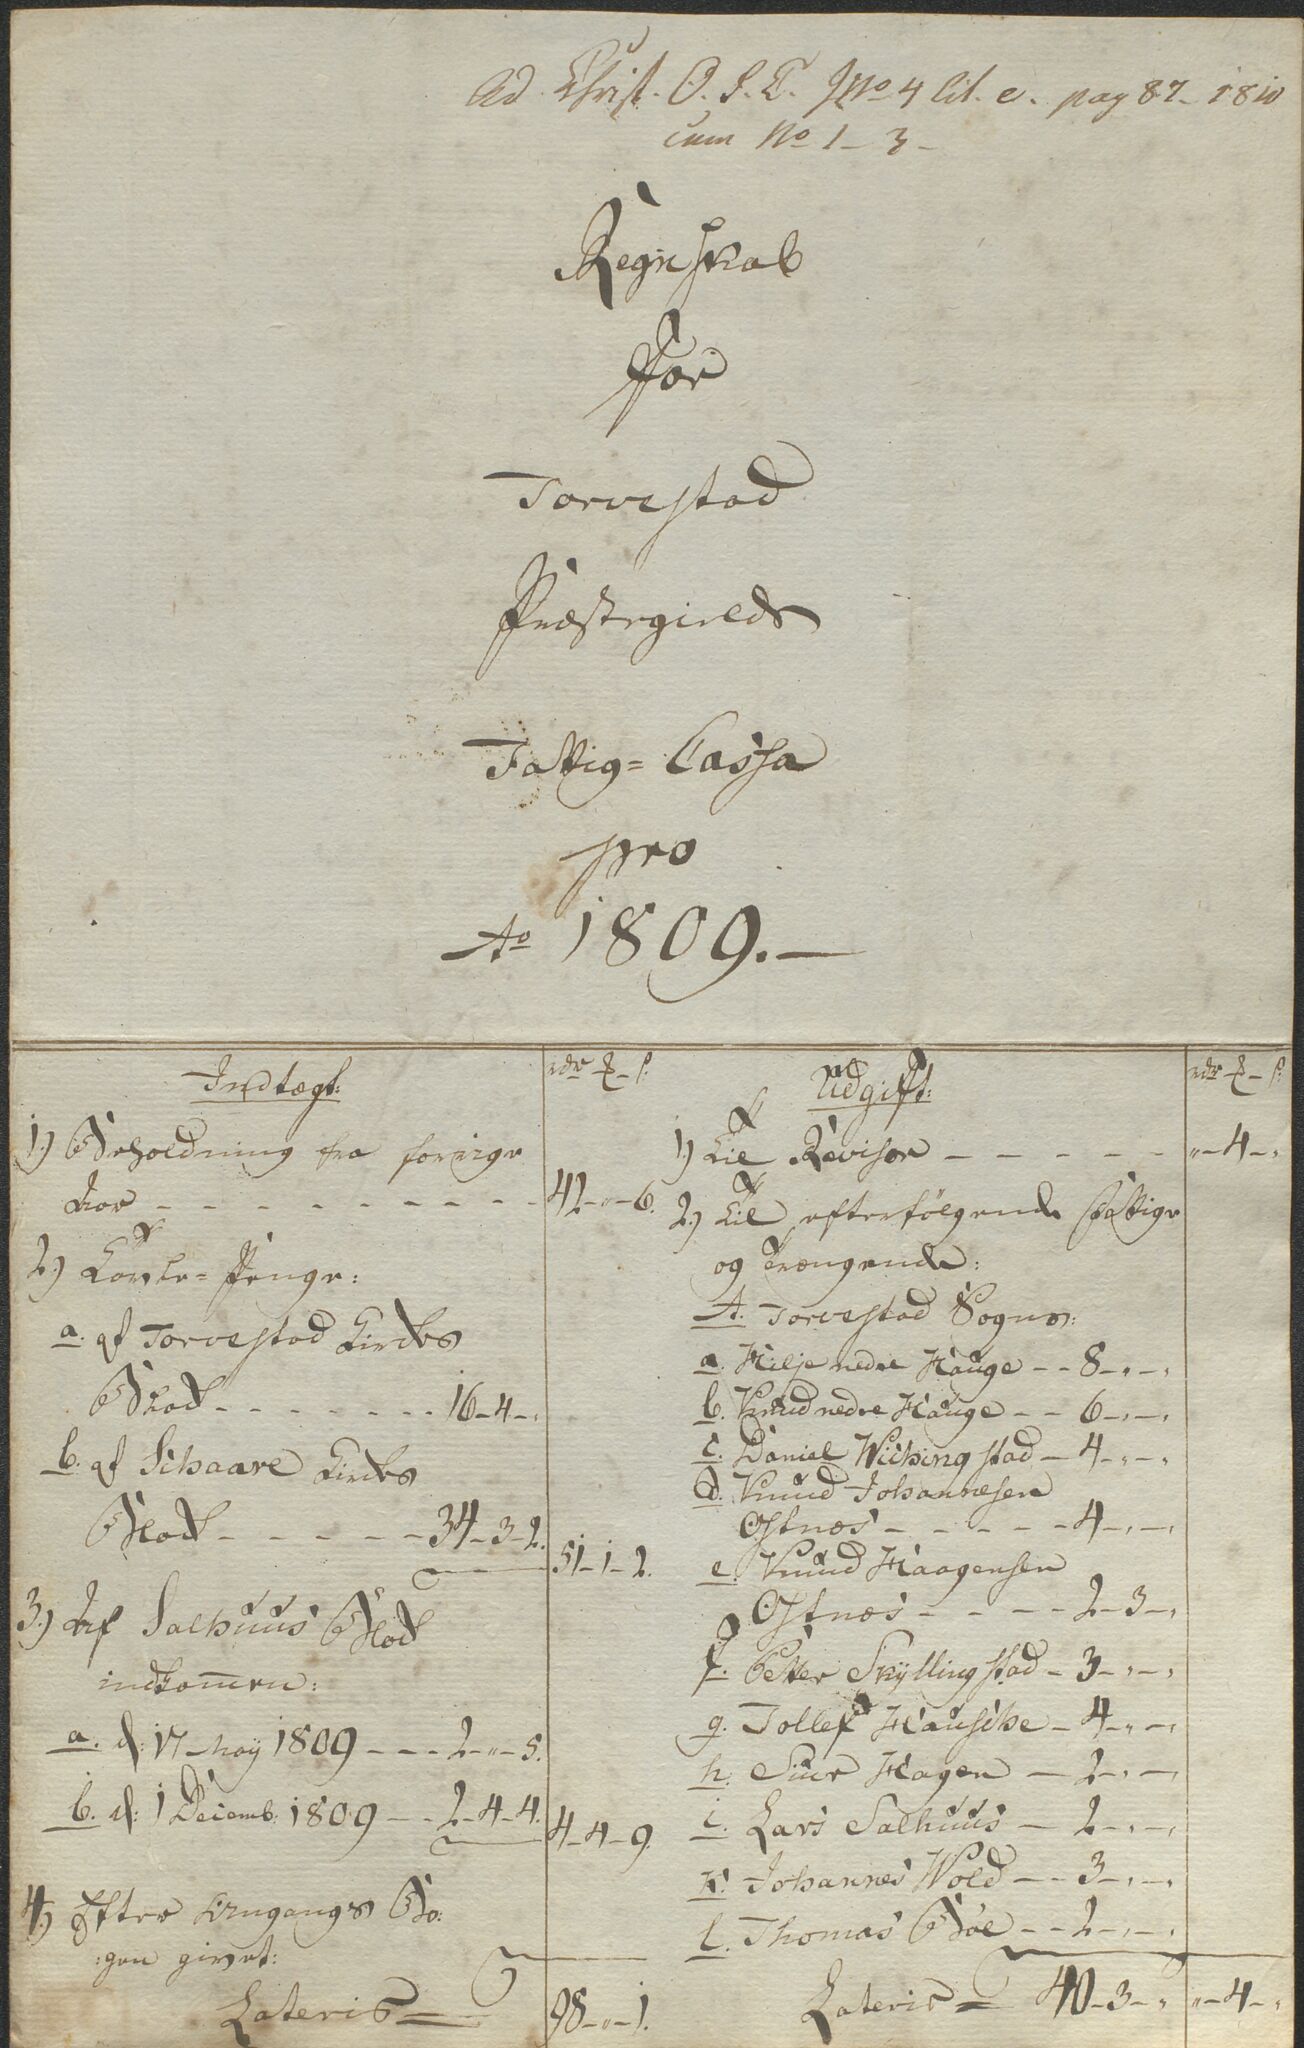 Ad Christ. O. S. T. JNo 4 lit. e. pag 87 - 1810
cum No 1 - 3 -
Regnskab
for
Torvestad
Præstegields
Fattig = Cassa
pro
Ao 1809. —
Indtægt:
rdr ƶ - s.
1) Beholdning fra forrige
Aar - - - - - - - - - 42 - " - 6.
2.) Tavle = Penge:
a. af Torvestad Kirckes
Blok - - - - - - - 16 - 4 - "
b. af Schaare Kirckes
Blok - - - - - 34 - 3 - 2. 51 - 1 - 2.
3.) Af Salhuus Blok
indkommen:
a. d: 17 May 1809 - - - 2 - " - 5.
b. d: 1 Decemb. 1809 - - 2 - 4 - 4. 4 - 4 - 9.
4.) Efter Omgangs Bo:
:gen givet:
Lateris = 98 - " - 1.
Udgift:
rdr ƶ - s.
1.) Til Revisor - - - - - " - 4 - "
2.) Til efterfølgende fattige
og Trængende:
A. Torvestad Sogn:
a. Hilje nedre Hauge - - 8 - " - "
b. Knud nedre Hauge - - 6 - " - "
c. Daniel Wichingstad - 4 - " - "
d. Knud Johannesen
Østnes - - - - - 4 - " - "
e. Knud Haagensen
Østnes - - - - 2 - 3 - "
f. Peter Skyllingstad - 3 - " - "
g. Tollef Hauscke - 4 - " - "
h. Siur Hagen - 2 - " - "
i. Lars Salhuus - 2 - " - "
k. Johannes Wold - - 3 - " - "
l. Thomas Bøe - - 2 - " - "
Lateris = 40 - 3 - " " - 4 - "